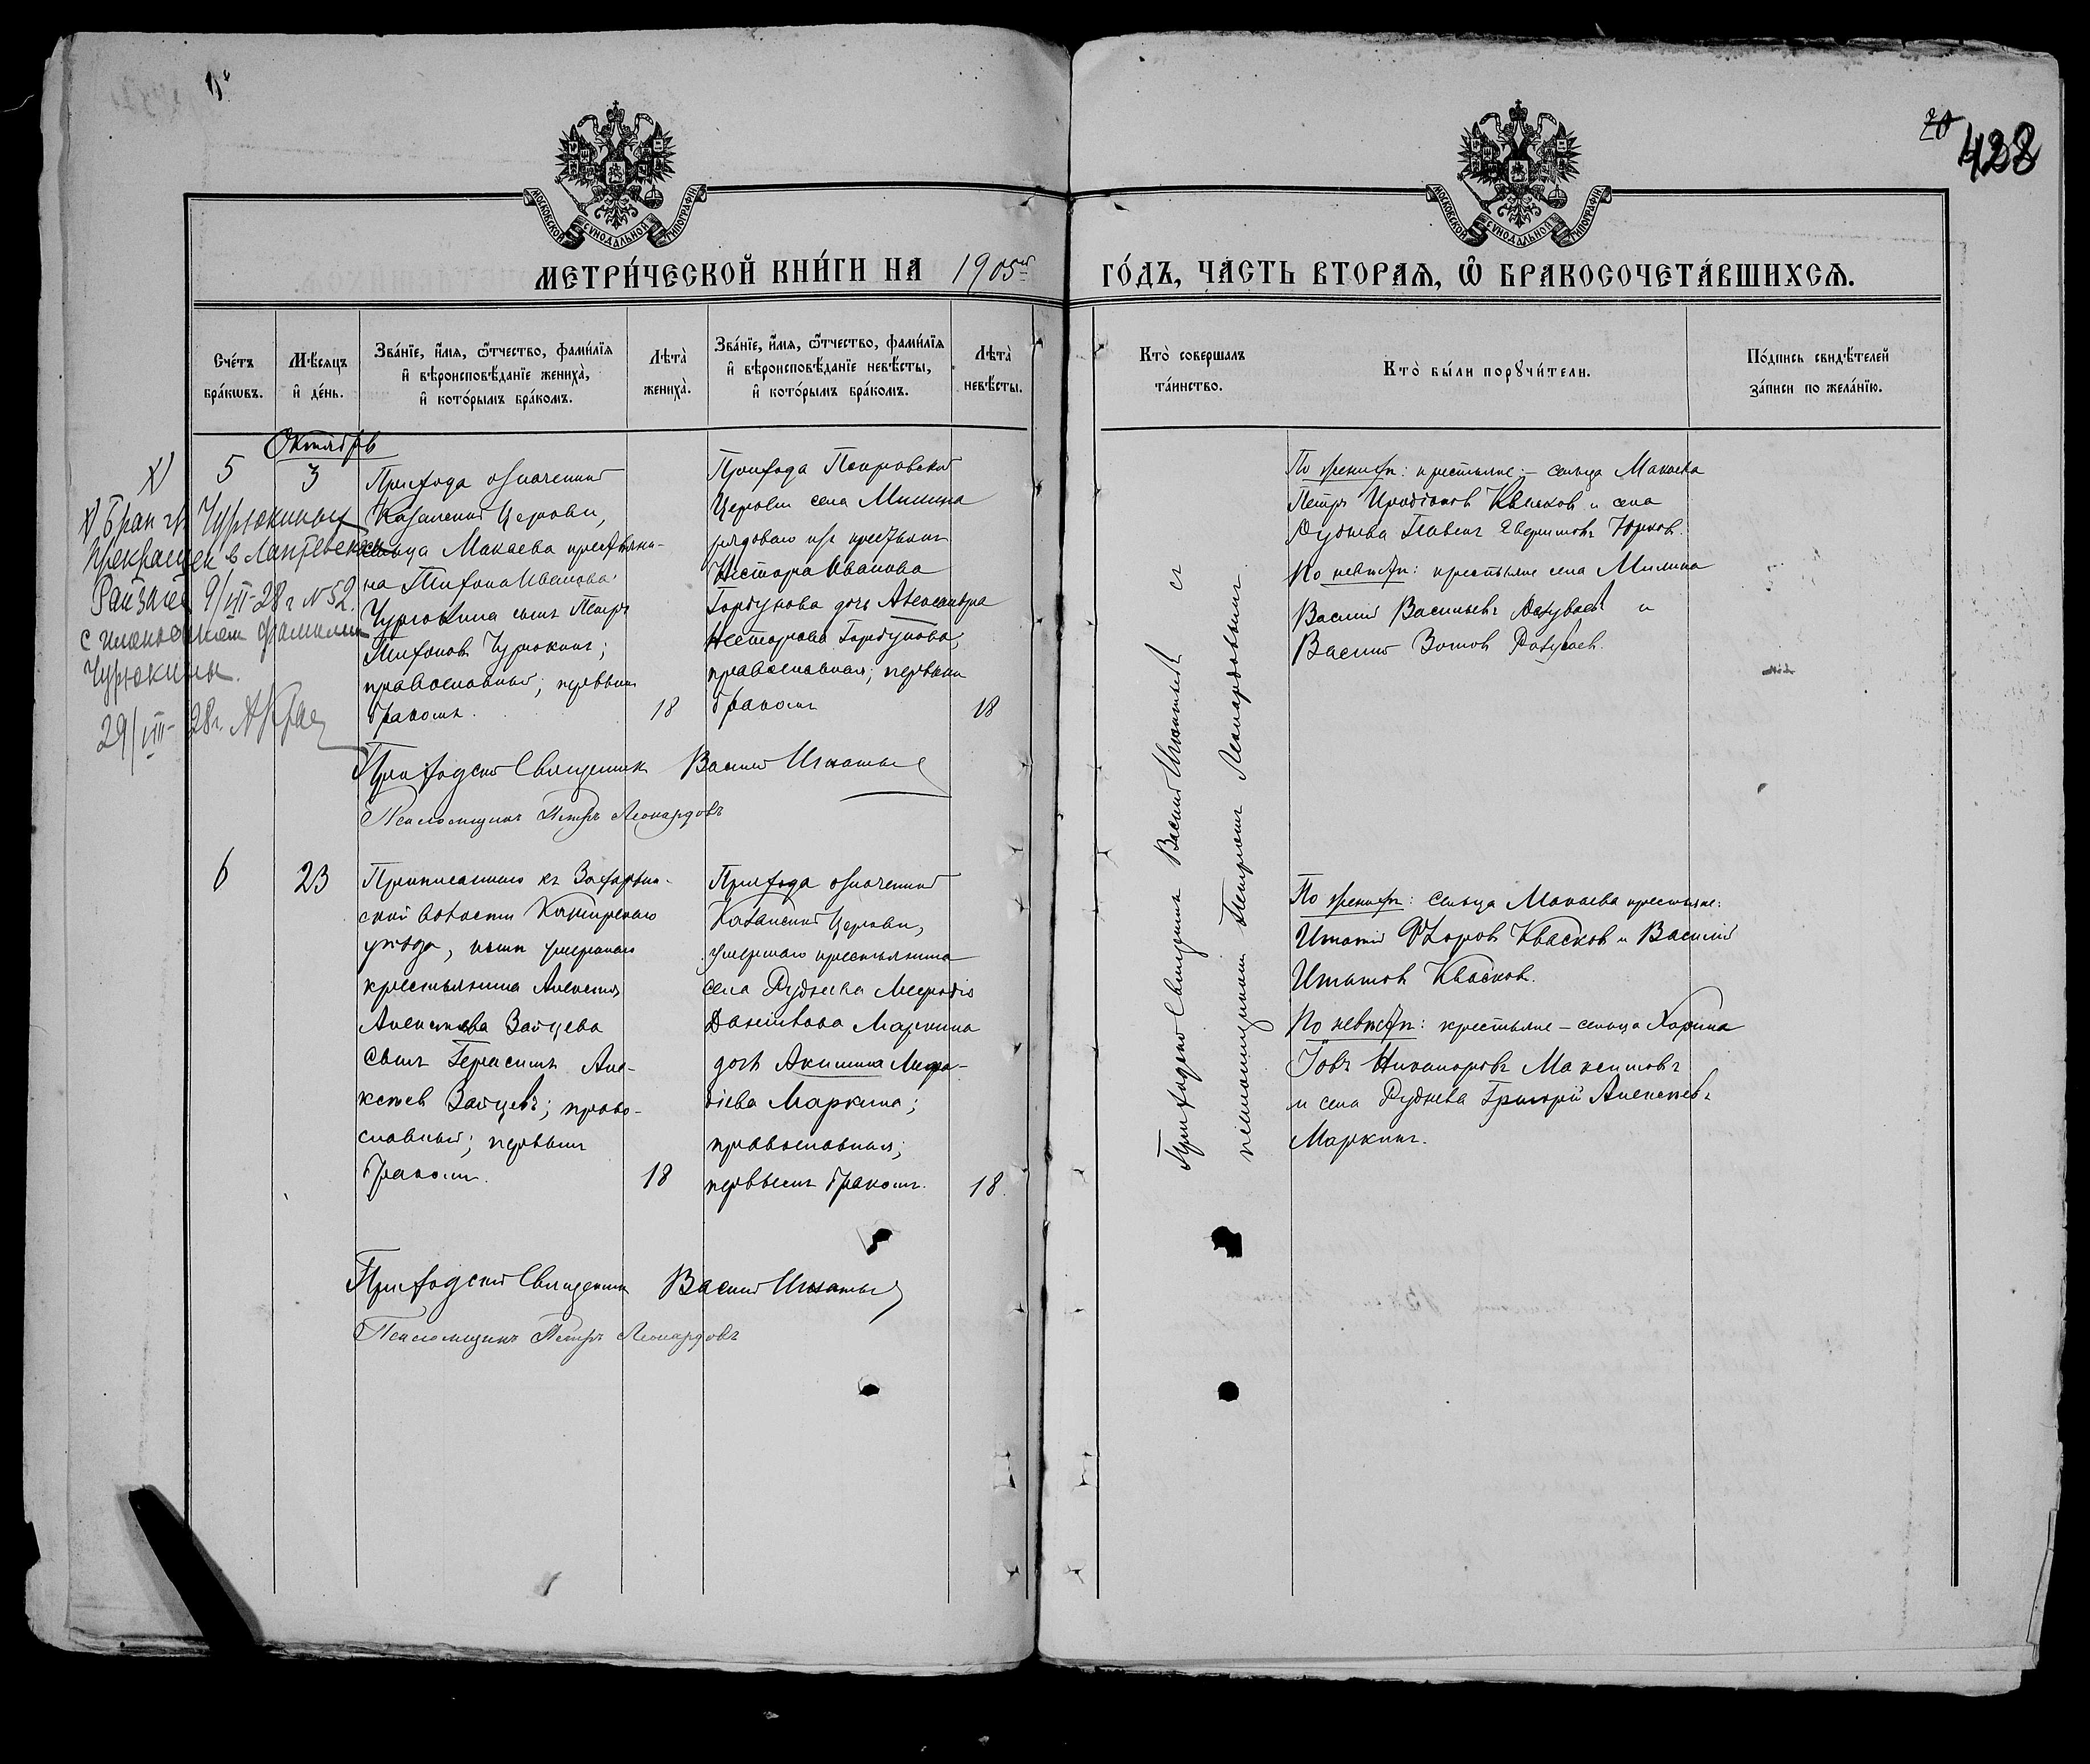 20
428
МОСКОВСКОЙ СѴНОДАЛЬНОЙ ТИПОГРАФІИ
МОСКОВСКОЙ СѴНОДАЛЬНОЙ ТИПОГРАФІИ
МЕТРИ́ЧЕСКОЙ КНИ́ГИ НА 1905й ГО́ДЪ, ЧА́СТЬ ВТОРАЯ, Ѽ БРАКОСОЧЕТА́ВШИХСѦ.
Сче́тъ бра́кѡвъ.
Мѣ́сяцъ и҆ де́нь.
Зва́нїе, и҆́мя, ѻ҆́тчество, фами́лїя
и҆ вѣроисповѣ́данїе жениха̀,
и҆ кото́рымъ бра́комъ.
Лѣта̀ жениха̀.
Зва́нїе, и҆́мя, ѻ҆́тчество, фами́лїя
и҆ вѣроисповѣ́данїе невѣ́сты,
и҆ кото́рымъ бра́комъ.
Лѣта̀ невѣ́сты.
Кто̀ совершалъ та́инство.
Кто̀ бы́ли порꙋчи́тели.
По́дпись свидѣ́телей за́писи по жела́нїю.
Октябрь
5
3
х) Брак гр. Чурюкиных
прекращен в Лаптевском
Райзагсе 9/VIII-28 г N 52.
с фамилии
Чурюкины.
29/VIII-28г.
Прихода означенной
Казанской Церкви,
сельца Макаева крестьяни-
на Тифона Иванова
Чурюкина сынъ Петръ
Тифоновъ Чурюкинъ;
православный; первымъ
бракомъ.
18
Прихода Покровской
Церкви села Милина
рядоваго изъ крестьянъ
Нестора Иванова
Горбунова дочь Александра
Несторова Горбунова;
православная; первымъ
бракомъ
18
Приходскій Священникъ Василій Игнатьев
Псаломщикъ Петръ Леонардовъ
Приходской Священникъ Василий Игнатьевъ съ
псаломщикомъ Петромъ Леонардовымъ
По женихѣ: крестьяне: – сельца Макаева
Петръ Иродіоновъ Квасков и села
Руднева Павелъ Юрков.
По невѣстѣ: крестьяне села Милина
Василій Васильевъ и
Василій Зотов
6
23
Приписаннаго къ
ской волости Каширскаго
уѣзда, нынѣ умершаго
крестьянина Алексѣя
Алексѣева Зайцева
сынъ Герасимъ Але-
ксѣев Зайцевъ; право-
славный; первымъ
бракомъ.
18
Прихода означенной
Казанской Церкви,
умершаго крестьянина
села Руднева Меѳодія
Данилова Маркина
дочь Акилина Меѳо-
діева Маркина;
православная;
первымъ бракомъ.
18.
По женихѣ: сельца Макаева крестьяне:
Игнатій Ѳедоров Квасков и Василій
Игнатов Квасков.
По невѣстѣ: крестьяне – сельца Харина
Іовъ Никаноровъ Максимовъ
и села Руднева Григорій Алексѣевъ
Маркинъ.
Приходскій Священникъ Василій Игнатьев
Псаломщикъ Петръ Леонардовъ